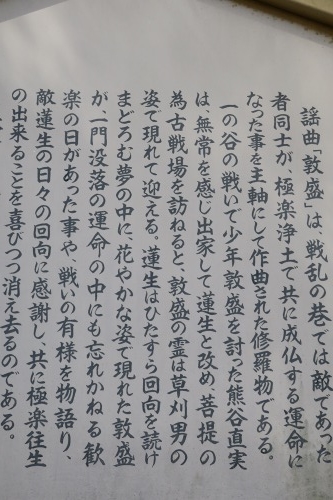 謡曲「敦盛」は、戦乱の巷では敵であった
者同士が、極楽浄土で共に成仏する運命に
なった事を主軸にして作曲された修羅物である。
一の谷の戦いで少年敦盛を討った熊谷直実
は、無常を感じ出家して蓮生と改め、菩提の
為古戦場を訪ねると、敦盛の霊は草刈男の
姿で現れて迎える。蓮生はひたすら回向を続け
まどろむ夢の中に、花やかな姿で現れた敦盛
が、一門没落の運命の中にも忘れかねる歓
楽の日があった事や、戦いの有様を物語り、
敵蓮生の日々の回向に感謝し、共に極楽往生
の出来ることを喜びつつ消え去るのである。